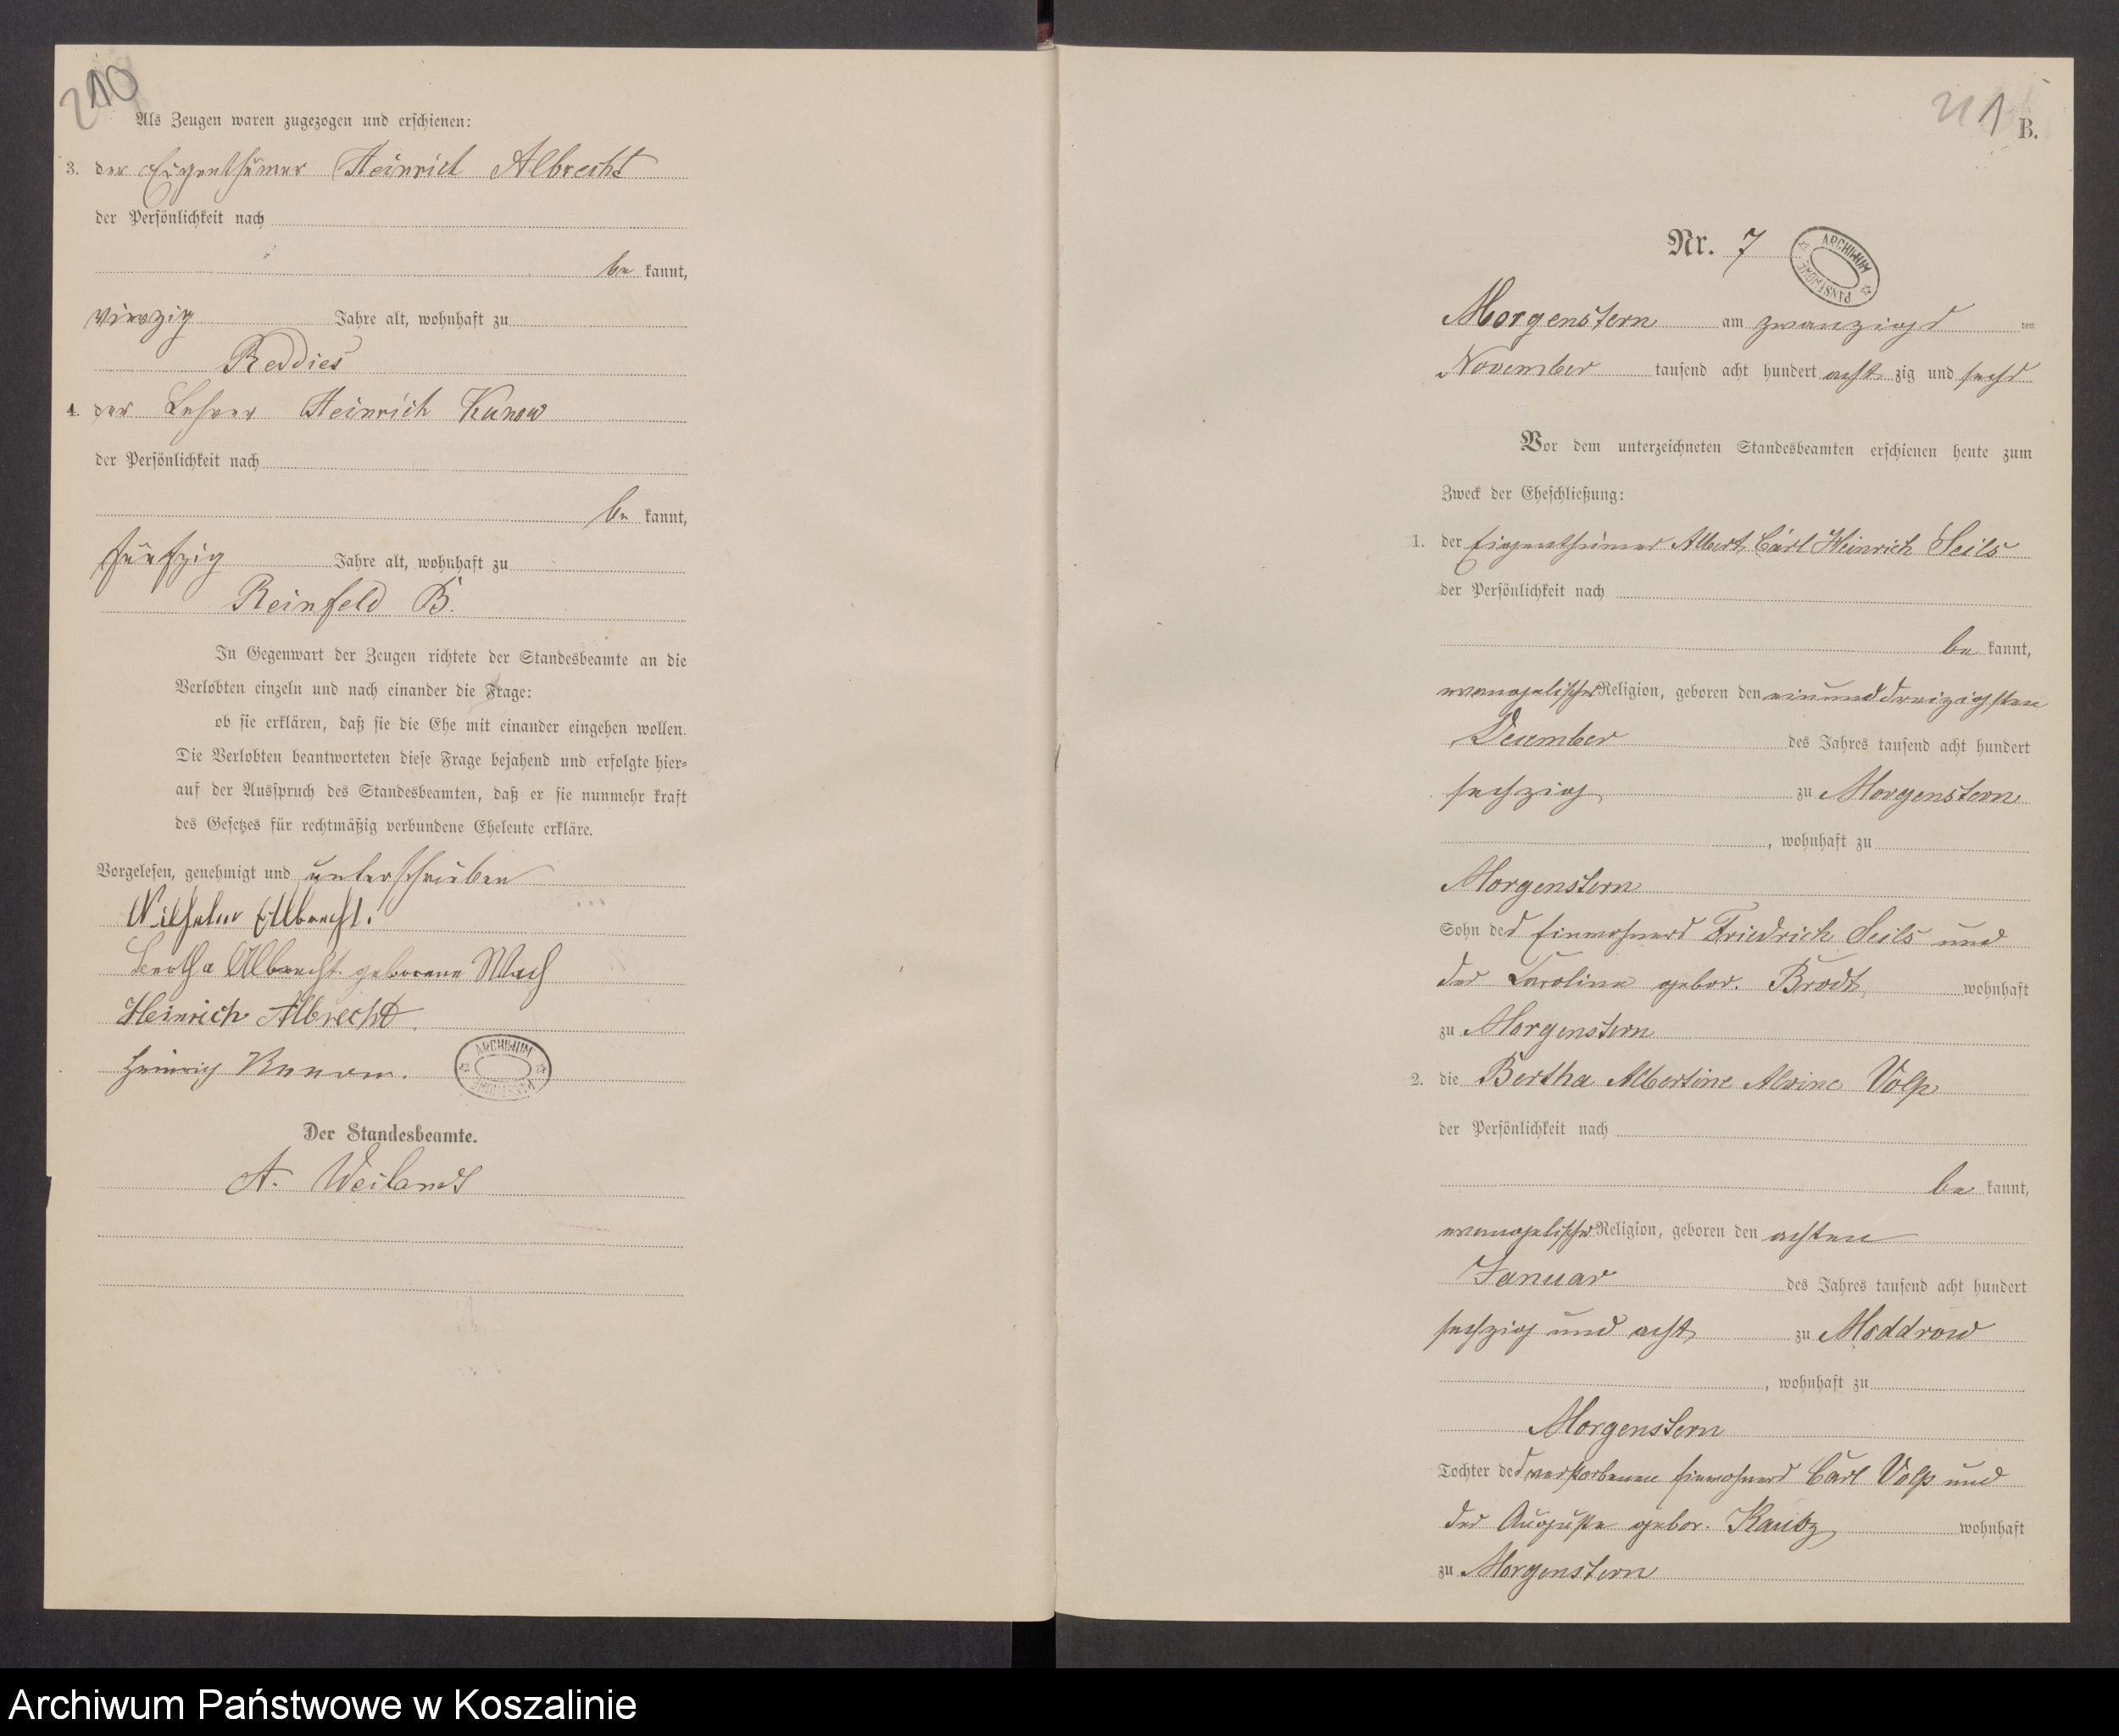 210
Als Zeugen waren zugezogen und erschienen:
3. der Eigenthümer Heinrich Albrecht
der Persönlichkeit nach
be kannt,
vierzig Jahre alt, wohnhaft zu
Reddies
4. der Lehrer Heinrich Kunow
der Persönlichkeit nach
be kannt,
fünfzig Jahre alt, wohnhaft zu
Reinfeld B.
In Gegenwart der Zeugen richtete der Standesbeamte an die
Verlobten einzeln und nach einander die Frage:
ob sie erklären, daß sie die Ehe mit einander eingehen wollen.
Die Verlobten beantworteten diese Frage bejahend und erfolgte hier-
auf der Ausspruch des Standesbeamten, daß er sie nunmehr kraft
des Gesetzes für rechtmäßig verbundene Eheleute erkläre.
Vorgelesen, genehmigt und unterschrieben
Wilhelm Albrecht.
Bertha Albrecht geborene Mach
Heinrich Albrecht.
Heinrich Kunow.
ARCHIWUM PAŃSTWOWE
Der Standesbeamte.
A. Weilandt
211
B.
Nr. 7
ARCHIWUM PAŃSTWOWE
Morgenstern am zwanzigs ten
November tausend acht hundert acht zig und sechs
Vor dem unterzeichneten Standesbeamten erschienen heute zum
Zweck der Eheschließung:
1. der Eigenthümer Albert Carl Heinrich Seils
der Persönlichkeit nach
be kannt,
evangelischer Religion, geboren den einunddreizigsten
December des Jahres tausend acht hundert
sechzig zu Morgenstern
, wohnhaft zu
Morgenstern
Sohn des Einwohners Friedrich Seils und
der Caroline gebor. Brodt wohnhaft
zu Morgenstern
2. die Bertha Albertine Alwine Volp
der Persönlichkeit nach
be kannt,
evangelischer Religion, geboren den achten
Januar des Jahres tausend acht hundert
sechzig und acht zu Moddrow
, wohnhaft zu
Morgenstern
Tochter des verstorbenen Einwohners Carl Volp und
der Auguste gebor. Kautz wohnhaft
zu Morgenstern
Archiwum Państwowe w Koszalinie